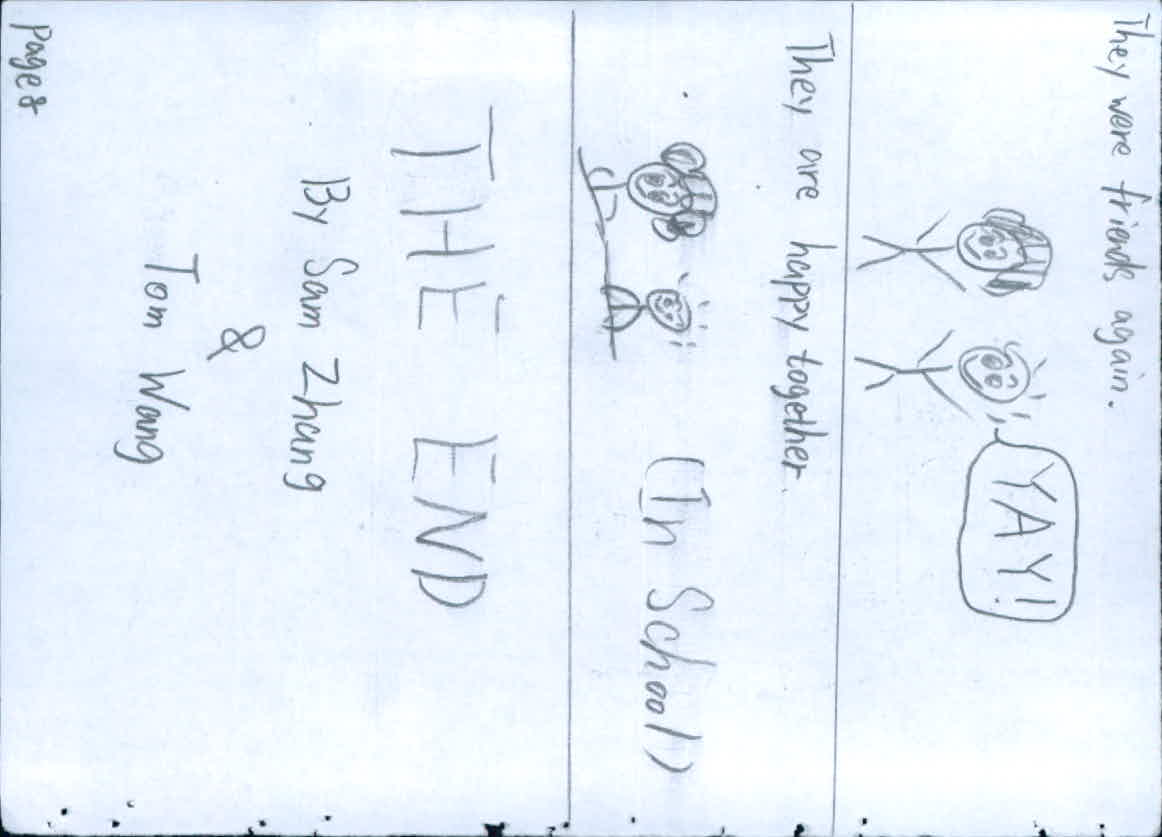 They were friends again.
YAY!
They are happy together.
(In School)
THE END
By Sam Zhang
&
Tom Wang
page 8